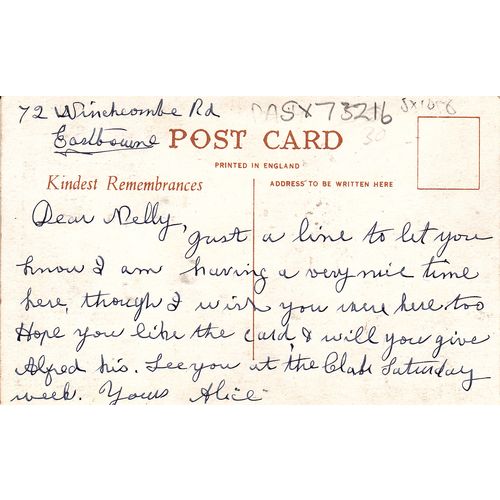 72 Winchcombe Rd
Eastbourne
DASX73216
SX1056
30
POST CARD
PRINTED IN ENGLAND
Kindest Remembrances
ADDRESS TO BE WRITTEN HERE
Dear Nelly,
just a line to let you
know I am having a very nice time
here, though I wish you were here too
Hope you like the card, & will you give
Alfred his. See you at the Club Saturday
week. Yours Alice